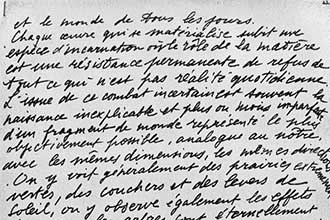 et le monde de tous les jours.
Chaque œuvre qui se matérialise subit une
espèce d'incarnation où le rôle de la matière
est une résistance permanente de refus de
tout ce qui n'est pas réalité quotidienne.
L'issue de ce combat incertain est souvent la
naissance inexplicable et plus ou moins imparfait
d'un fragment de monde représenté le plus
objectivement possible, analogue au nôtre,
avec les mêmes dimensions, les mêmes direct
On y voit généralement des prairies
vertes, des couchers et des levers de
soleil, on y observe également les effets
sont éternellement